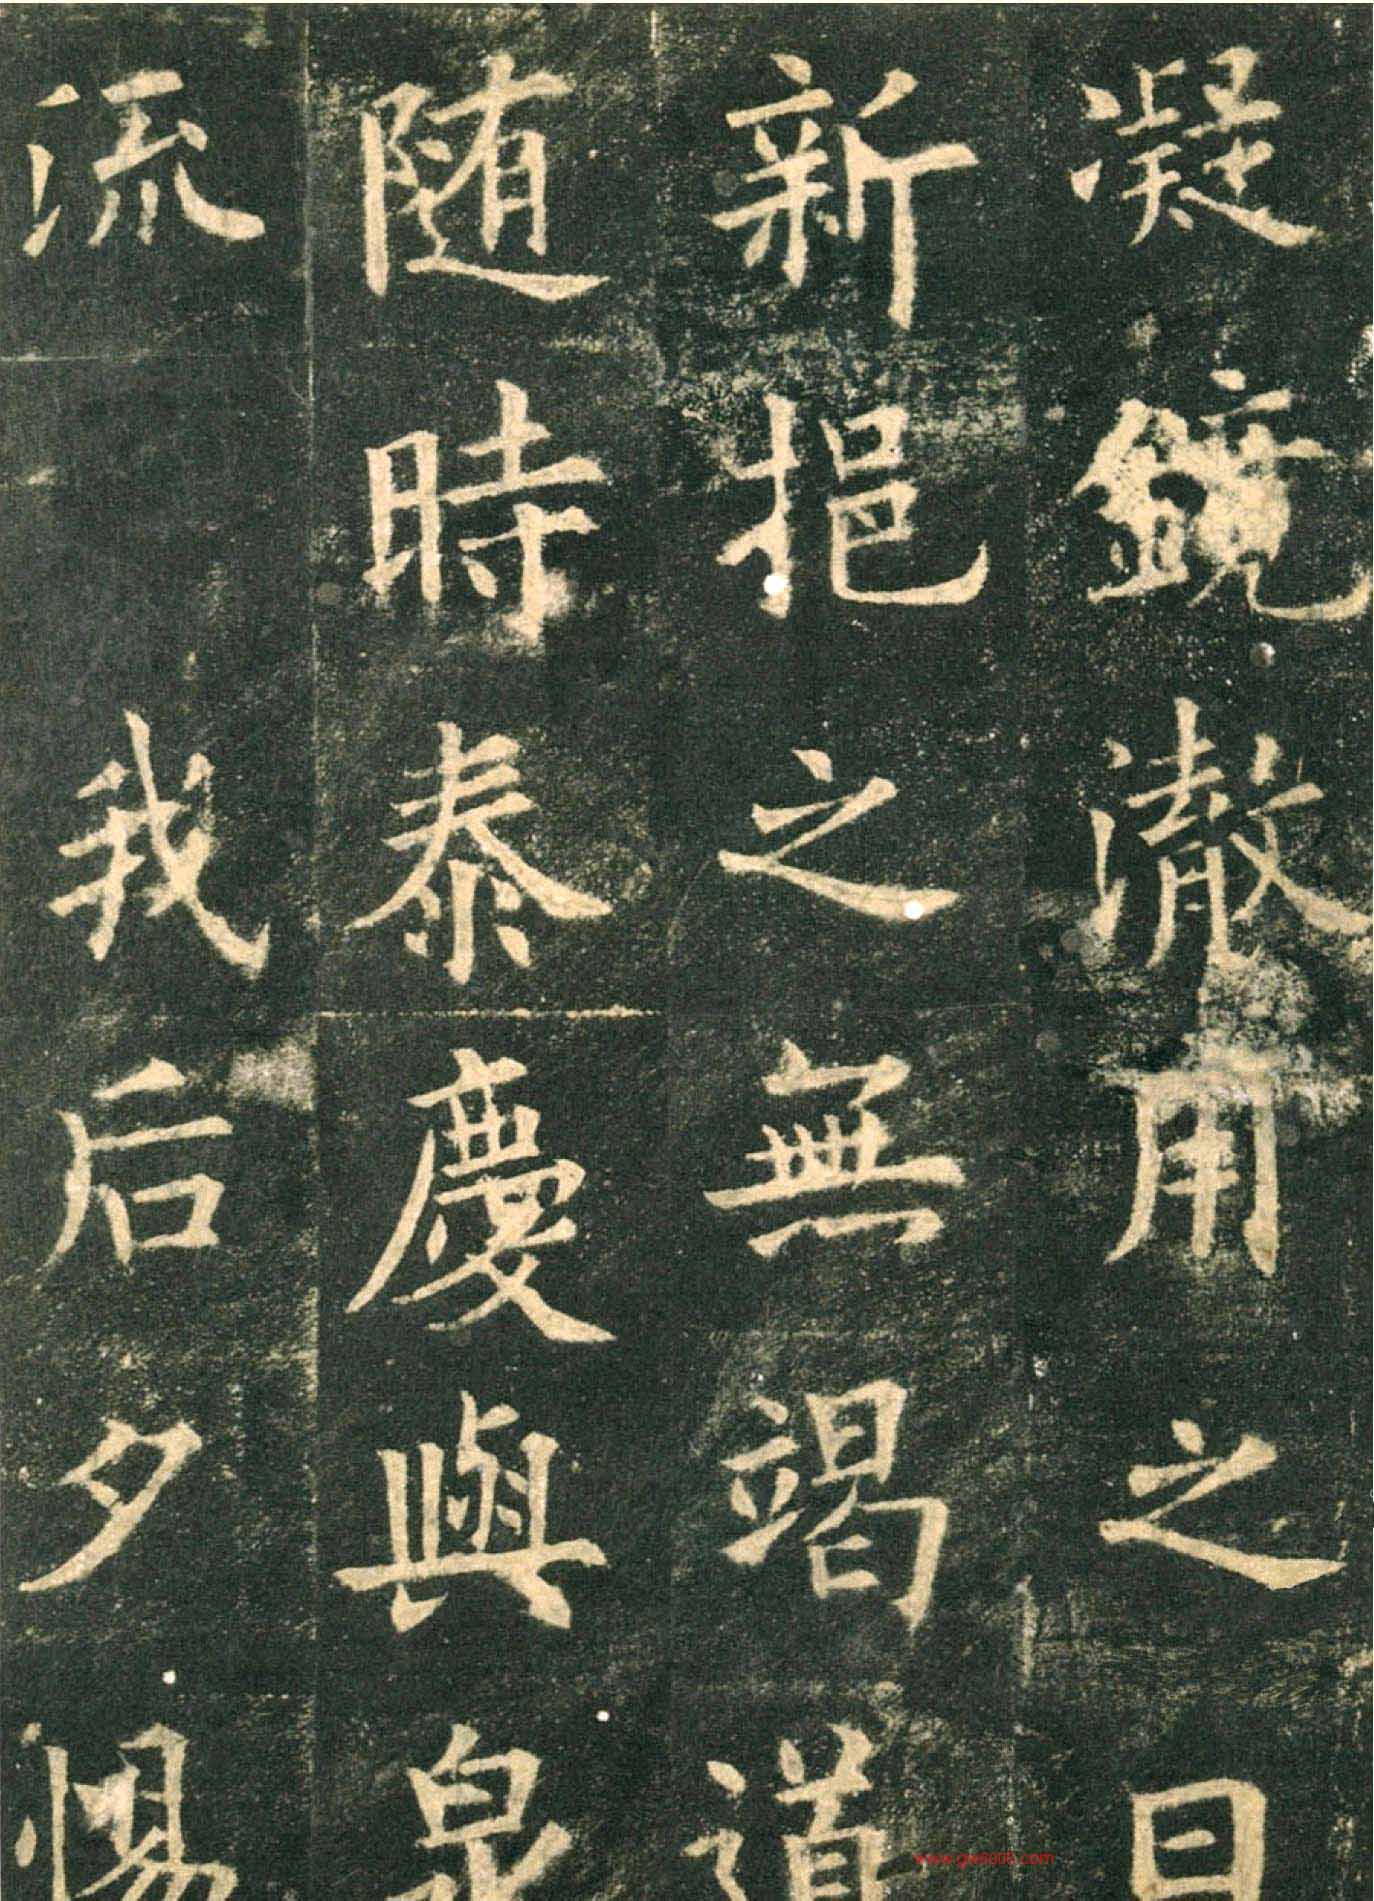 凝鏡澈用之日
新挹之無竭道
随時泰慶與泉
流 我后夕惕
www.gws000.com